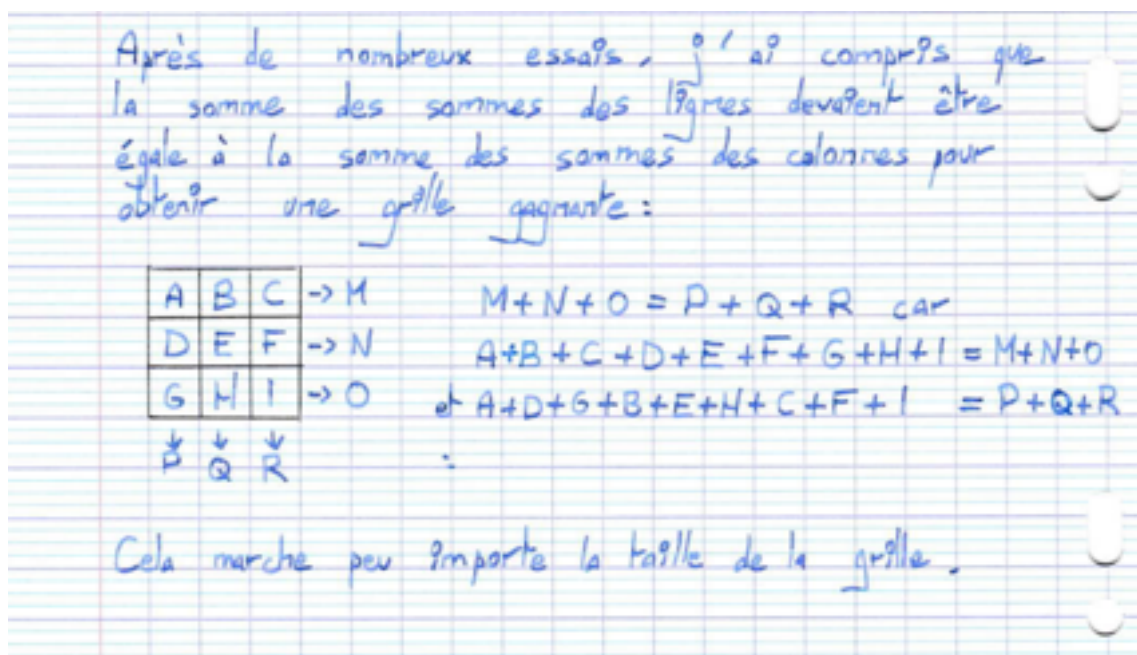 Après de nombreux essais, j'ai compris que
la somme des sommes des lignes devaient être
égale à la somme des sommes des colonnes pour
obtenir une grille gagnante :
A B C -> M M+N+O = P+Q+R car
D E F -> N A+B+C+D+E+F+G+H+I = M+N+O
G H I -> O et A+D+G+B+E+H+C+F+I = P+Q+R
↓ ↓ ↓ :
P Q R
Cela marche peu importe la taille de la grille.